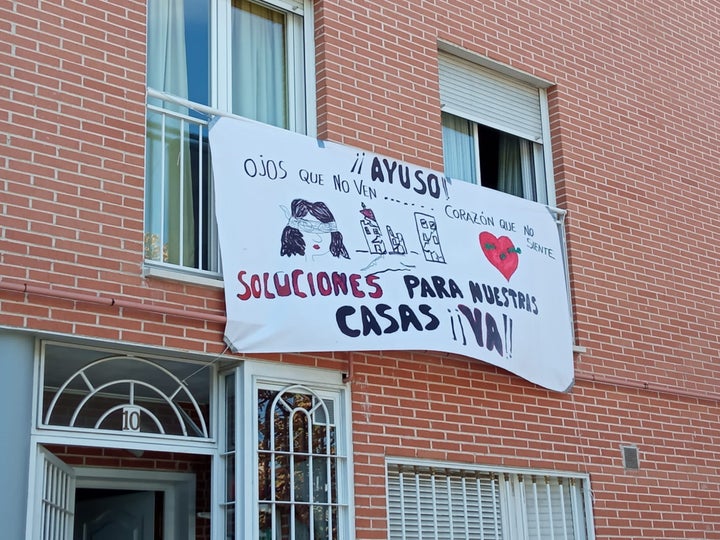 ¡¡AYUSO!!
OJOS QUE NO VEN...... CORAZÓN QUE NO
SIENTE
SOLUCIONES PARA NUESTRAS
CASAS ¡¡YA!!
10